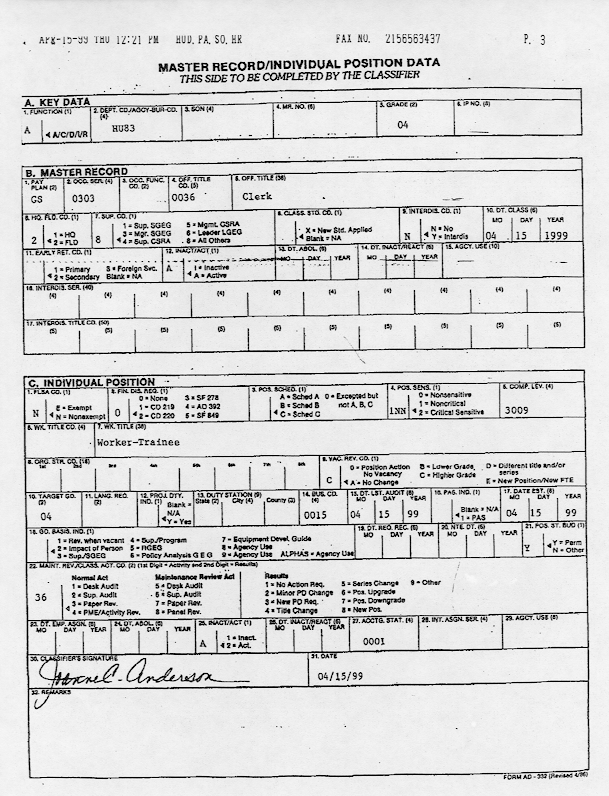 APR-15-99 THU 12:21 PM HUD, PA, SO, HR FAX NO. 2156563437 P. 3
MASTER RECORD/INDIVIDUAL POSITION DATA
THIS SIDE TO BE COMPLETED BY THE CLASSIFIER
A. KEY DATA
1. FUNCTION (1) 2. DEPT. CD./AGCY-BUR-CD. (4) 3. SON (4) 4. MR. NO. (6) 5. GRADE (2) 6. IP NO. (8)
A A/C/D/I/R HU83 04
B. MASTER RECORD
1. PAY PLAN (2) 2. OCC. SER. (4) 3. OCC. FUNC. CD. (2) 4. OFF. TITLE CD. (5) 5. OFF. TITLE (38)
GS 0303 0036 Clerk
6. HQ. FLD. CD. (1) 7. SUP. CD. (1) 8. CLASS. STD. CD. (1) 9. INTERDIS. CD. (1) 10. DT. CLASS (6)
MO DAY YEAR
1 = HQ 1 = Sup. SGEG 5 = Mgmt. CSRA X = New Std. Applied N = No
2 2 = FLD 8 3 = Mgr. SGEG 6 = Leader LGEG Blank = NA N Y = Interdis 04 15 1999
4 = Sup. CSRA 8 = All Others
11. EARLY RET. CD. (1) 12. INACT/ACT (1) 13. DT. ABOL. (6) 14. DT. INACT/REACT (6) 15. AGCY. USE (10)
MO DAY YEAR MO DAY YEAR
1 = Primary 3 = Foreign Svc. A I = Inactive
2 = Secondary Blank = NA A = Active
16. INTERDIS. SER. (40)
(4) (4) (4) (4) (4) (4) (4) (4) (4) (4)
17. INTERDIS. TITLE CD. (50)
(5) (5) (5) (5) (5) (5) (5) (5) (5) (5)
C. INDIVIDUAL POSITION
1. FLSA CD. (1) 2. FIN. DIS. REQ. (1) 3. POS. SCHED. (1) 4. POS. SENS. (1) 5. COMP. LEV. (4)
0 = None 3 = SF 278 A = Sched A 0 = Excepted but 0 = Nonsensitive
N E = Exempt 0 1 = CD 219 4 = AD 392 B = Sched B not A, B, C 1NN 1 = Noncritical 3009
N = Nonexempt 2 = CD 220 5 = SF 849 C = Sched C 2 = Critical Sensitive
6. WK. TITLE CD. (4) 7. WK. TITLE (38)
Worker-Trainee
8. ORG. STR. CD. (18) 9. VAC. REV. CD. (1)
1st 2nd 3rd 4th 5th 6th 7th 8th
0 = Position Action No Vacancy B = Lower Grade D = Different title and/or series
C A = No Change C = Higher Grade E = New Position/New FTE
10. TARGET GD. (2) 11. LANG. REQ. (2) 12. PROJ. DTY. IND. (1) 13. DUTY STATION (9) 14. BUS. CD. (4) 15. DT. LST. AUDIT (6) 16. PAS. IND. (1) 17. DATE EST. (6)
Blank = N/A State (2) City (4) County (3) MO DAY YEAR Blank = N/A MO DAY YEAR
04 Y = Yes 0015 04 15 99 1 = PAS 04 15 99
18. GD. BASIS. IND. (1) 19. DT. REQ. REC. (6) 20. NTE. DT. (6) 21. POS. ST. BUD (1)
MO DAY YEAR MO DAY YEAR
1 = Rev. when vacant 4 = Sup./Program 7 = Equipment Devel. Guide
2 = Impact of Person 5 = RGEG 8 = Agency Use Y Y = Perm
3 = Sup./SGEG 6 = Policy Analysis G E G 9 = Agency Use ALPHAS = Agency Use N = Other
22. MAINT. REV./CLASS. ACT. CD. (2) (1st Digit = Activity and 2nd Digit = Results)
Normal Act Maintenance Review Act Results
1 = Desk Audit 5 = Desk Audit 1 = No Action Req. 5 = Series Change 9 = Other
36 2 = Sup. Audit 6 = Sup. Audit 2 = Minor PD Change 6 = Pos. Upgrade
3 = Paper Rev. 7 = Paper Rev. 3 = New PD Req. 7 = Pos. Downgrade
4 = PME/Activity Rev. 8 = Panel Rev. 4 = Title Change 8 = New Pos.
23. DT. EMP. ASGN. (6) 24. DT. ABOL. (6) 25. INACT/ACT (1) 26. DT. INACT/REACT (6) 27. ACCTG. STAT. (4) 28. INT. ASGN. SER. (4) 29. AGCY. USE (8)
MO DAY YEAR MO DAY YEAR MO DAY YEAR
A 1 = Inact. 0001
2 = Act.
30. CLASSIFIER'S SIGNATURE 31. DATE
Joanne C. Anderson 04/15/99
32. REMARKS
FORM AD - 332 (Revised 4/86)